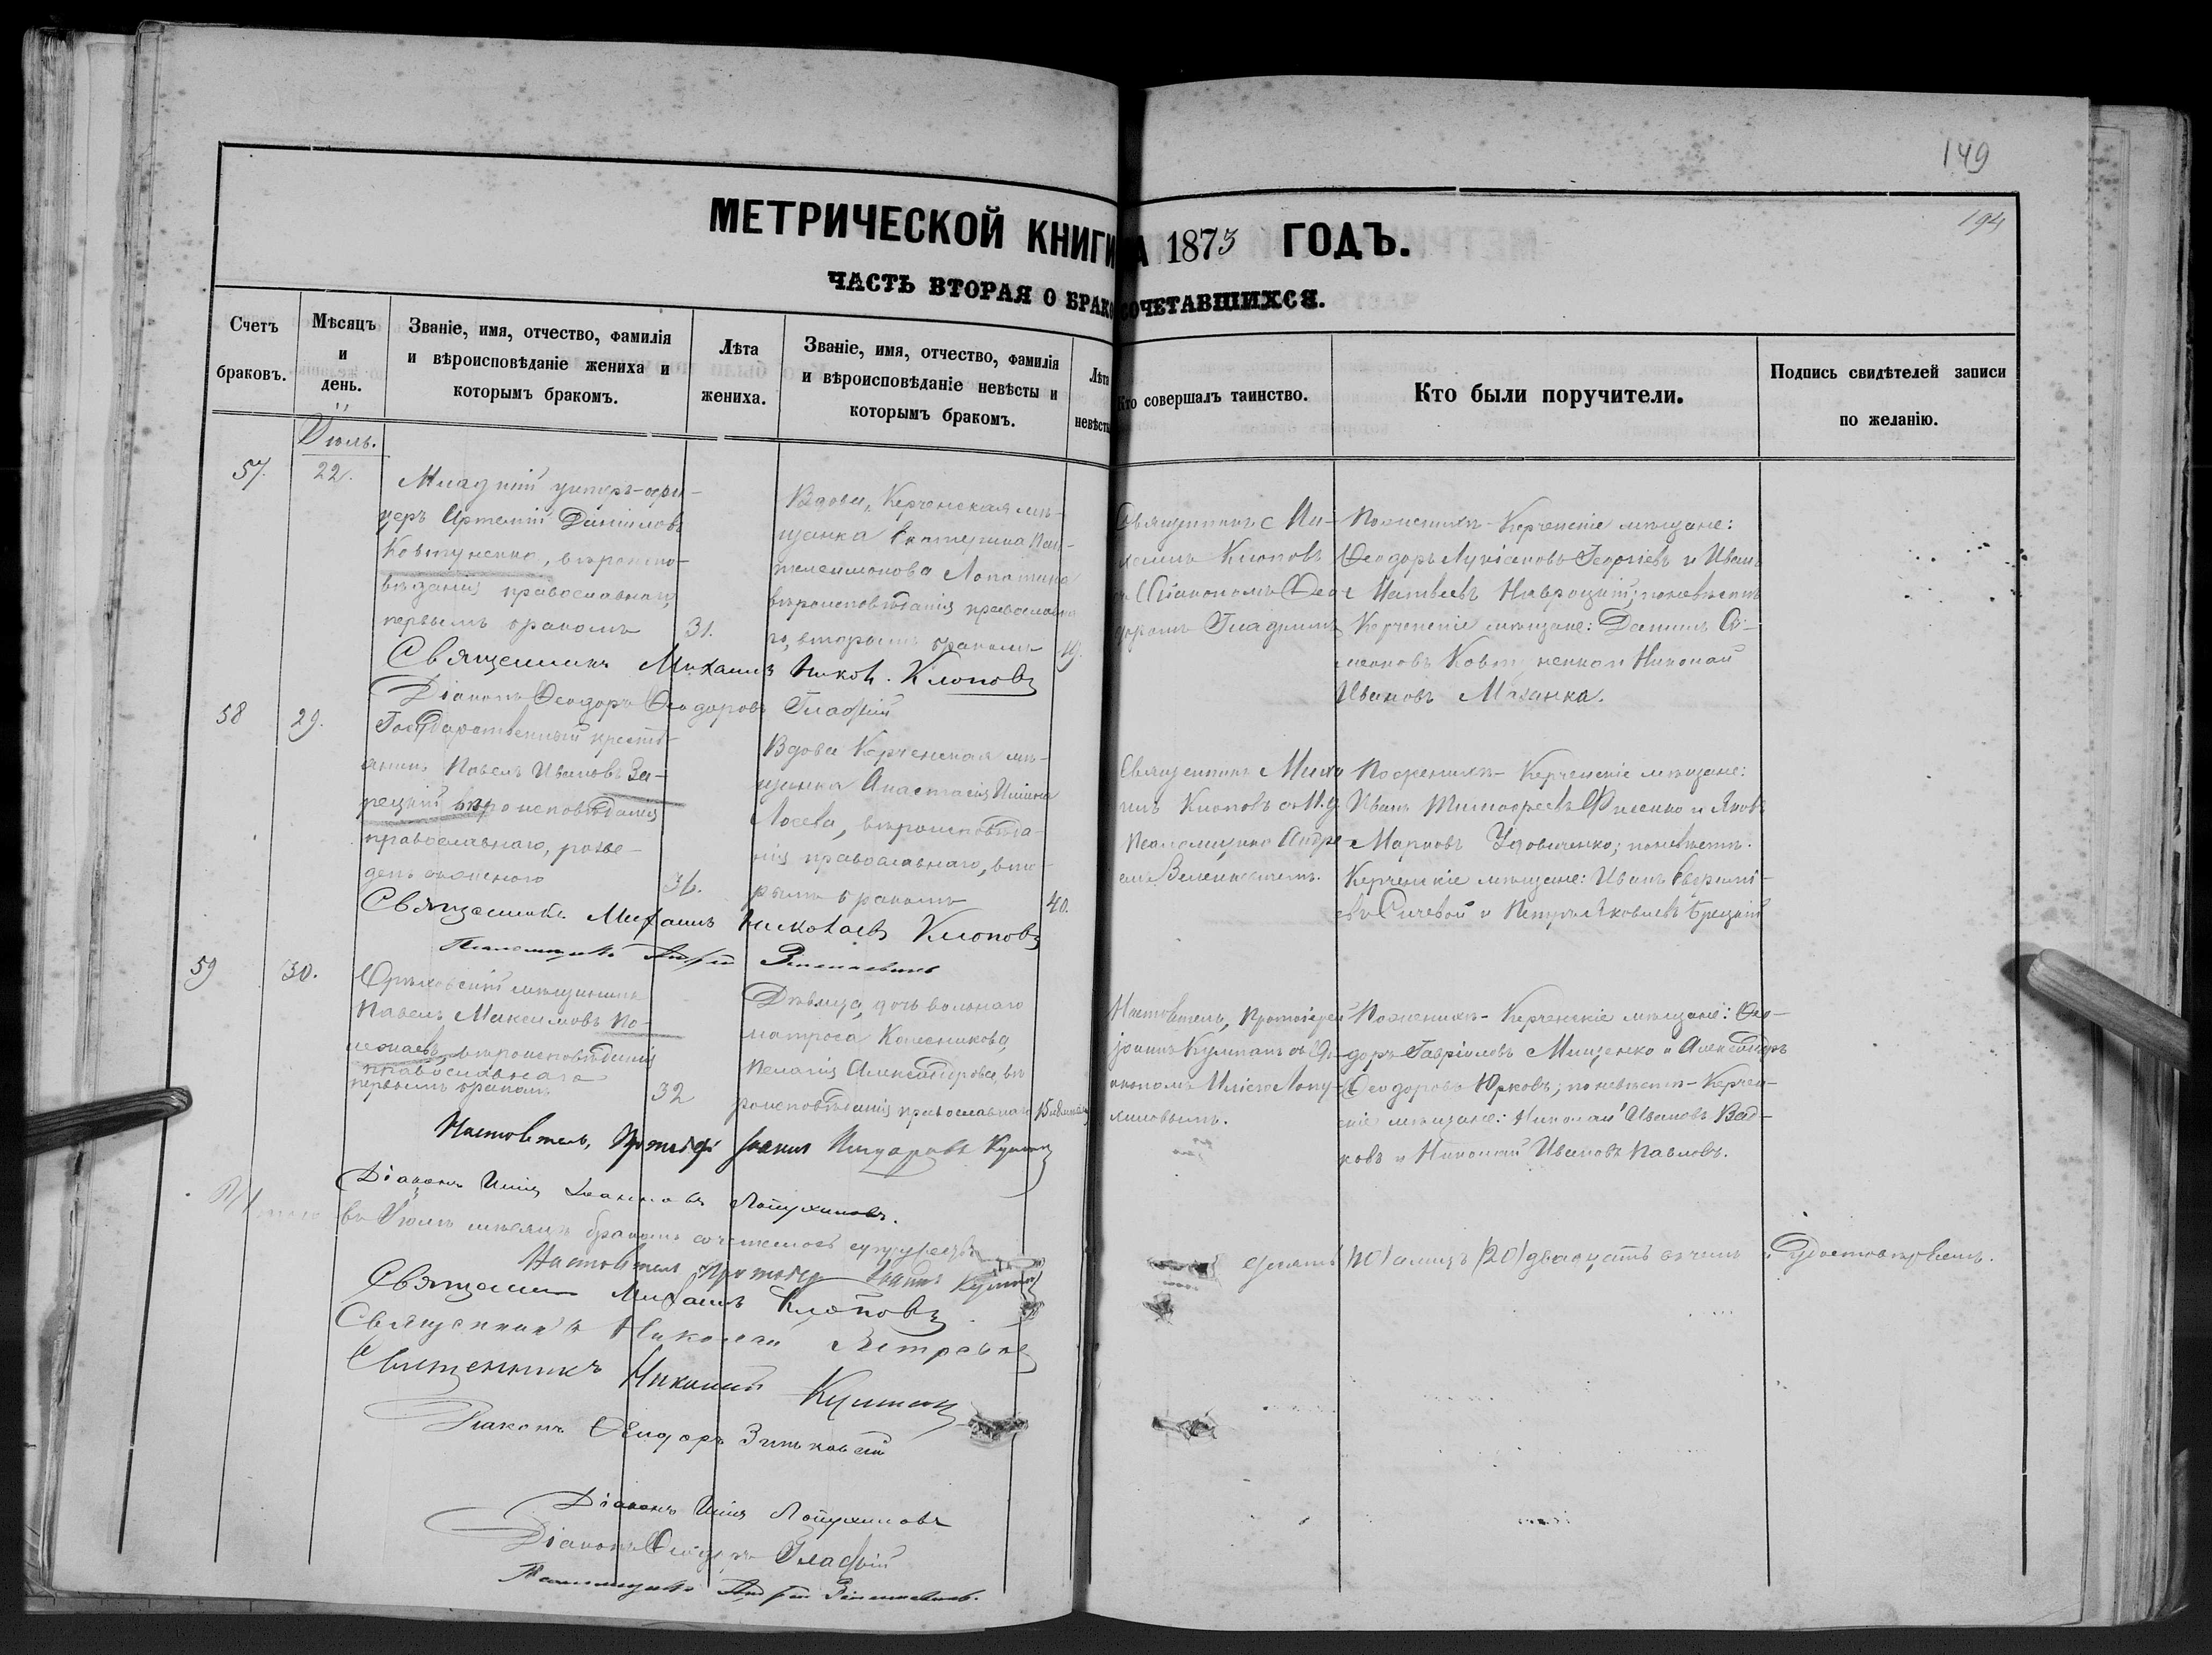 149
194
МЕТРИЧЕСКОЙ КНИГИ НА 1873 ГОДЪ.
ЧАСТЬ ВТОРАЯ О БРАКОСОЧЕТАВШИХСЯ.
Счетъ браковъ.
Мѣсяцъ и день.
Званіе, имя, отчество, фамилія и вѣроисповѣданіе жениха и которымъ бракомъ.
Лѣта жениха.
Званіе, имя, отчество, фамилія и вѣроисповѣданіе невѣсты и которымъ бракомъ.
Лѣта невѣсты
Кто совершалъ таинство.
Кто были поручители.
Подпись свидѣтелей записи по желанію.
Іюль.
57.
22.
Младшій унтеръ-офи-
церъ Артемій Даніиловъ
Ковтуненко, вѣроиспо-
вѣданія православнаго,
первымъ бракомъ
31.
Вдова, Керченская мѣ-
щанка Екатерина Пан-
телеимонова Лопатина
вѣроисповѣданія православна
го, вторымъ бракомъ
19.
Священникъ Ми-
хаилъ Клоповъ
съ Діакономъ Ѳео-
доромъ Гладкимъ
По женихѣ - Керченскіе мѣщане:
Ѳеодоръ Лукіановъ Георгіевъ и Иванъ
Матвѣевъ Навроцкій; по невѣстѣ
Керченскіе мѣщане: Даніилъ Си-
меоновъ Ковтуненко и Николай
Ивановъ Мазанка.
Священникъ Михаилъ Никол. Клоповъ
Діаконъ Ѳеодоръ Ѳеодоровъ Гладкій
58
29.
Государственный кресть-
янинъ Павелъ Ивановъ За-
рецкій вѣроисповѣданія
православнаго, разве-
денъ съ женою
36.
Вдова Керченская мѣ-
щанка Анастасія Ильина
Лосева, вѣроисповѣда-
нія православнаго, вто-
рымъ бракомъ
40.
Священникъ Миха
илъ Клоповъ съ И. д.
Псаломщика Андре-
емъ Зеленкевичемъ.
По женихѣ - Керченскіе мѣщане:
Иванъ Тимоѳеевъ Фисенко и Яковъ
Марковъ Удовиченко; по невѣстѣ.
Керченскіе мѣщане: Иванъ
Сычевой и Петръ Яковлевъ
Священникъ Михаилъ Николаевъ Клоповъ
Псаломщикъ Андрей Зеленкевичъ
59
30.
Орѣховскій мѣщанинъ
Павелъ Максимовъ По-
лежаевъ, вѣроисповѣданія
православнаго
первымъ бракомъ
32
Дѣвица, дочь вольнаго
матроса Колесникова,
Пелагія Александрова, вѣ
роисповѣданія православнаго
Настоятель, Протоіерей
Іоаннъ Кушланъ съ Ді-
акономъ Иліею Лопу-
хиновымъ.
По женихѣ - Керченскіе мѣщане: Ѳео-
доръ Гавріиловъ Мищенко и Александръ
Ѳеодоровъ Юрковъ; по невѣстѣ - Керчен-
скіе мѣщане: Николай Ивановъ Вад-
ковъ и Николай Ивановъ Павловъ.
Настоятель, Протоіерей Іоаннъ
Діаконъ Илія Іоанновъ Лопухиновъ.
въ Іюлѣ мѣсяцѣ бракомъ сочеталось супружествъ десять /10/ а лицъ /20/ двадцать въ чемъ и удостовѣряемъ.
Настоятель протоіерей Іоаннъ
Священникъ Михаилъ Клоповъ
Священникъ Николай
Священникъ Николай
Діаконъ Ѳеодоръ Зиньковскій
Діаконъ Илія Лопухиновъ
Діаконъ Ѳеодоръ Гладкій
Псаломщикъ Андрей Зеленкевичъ.